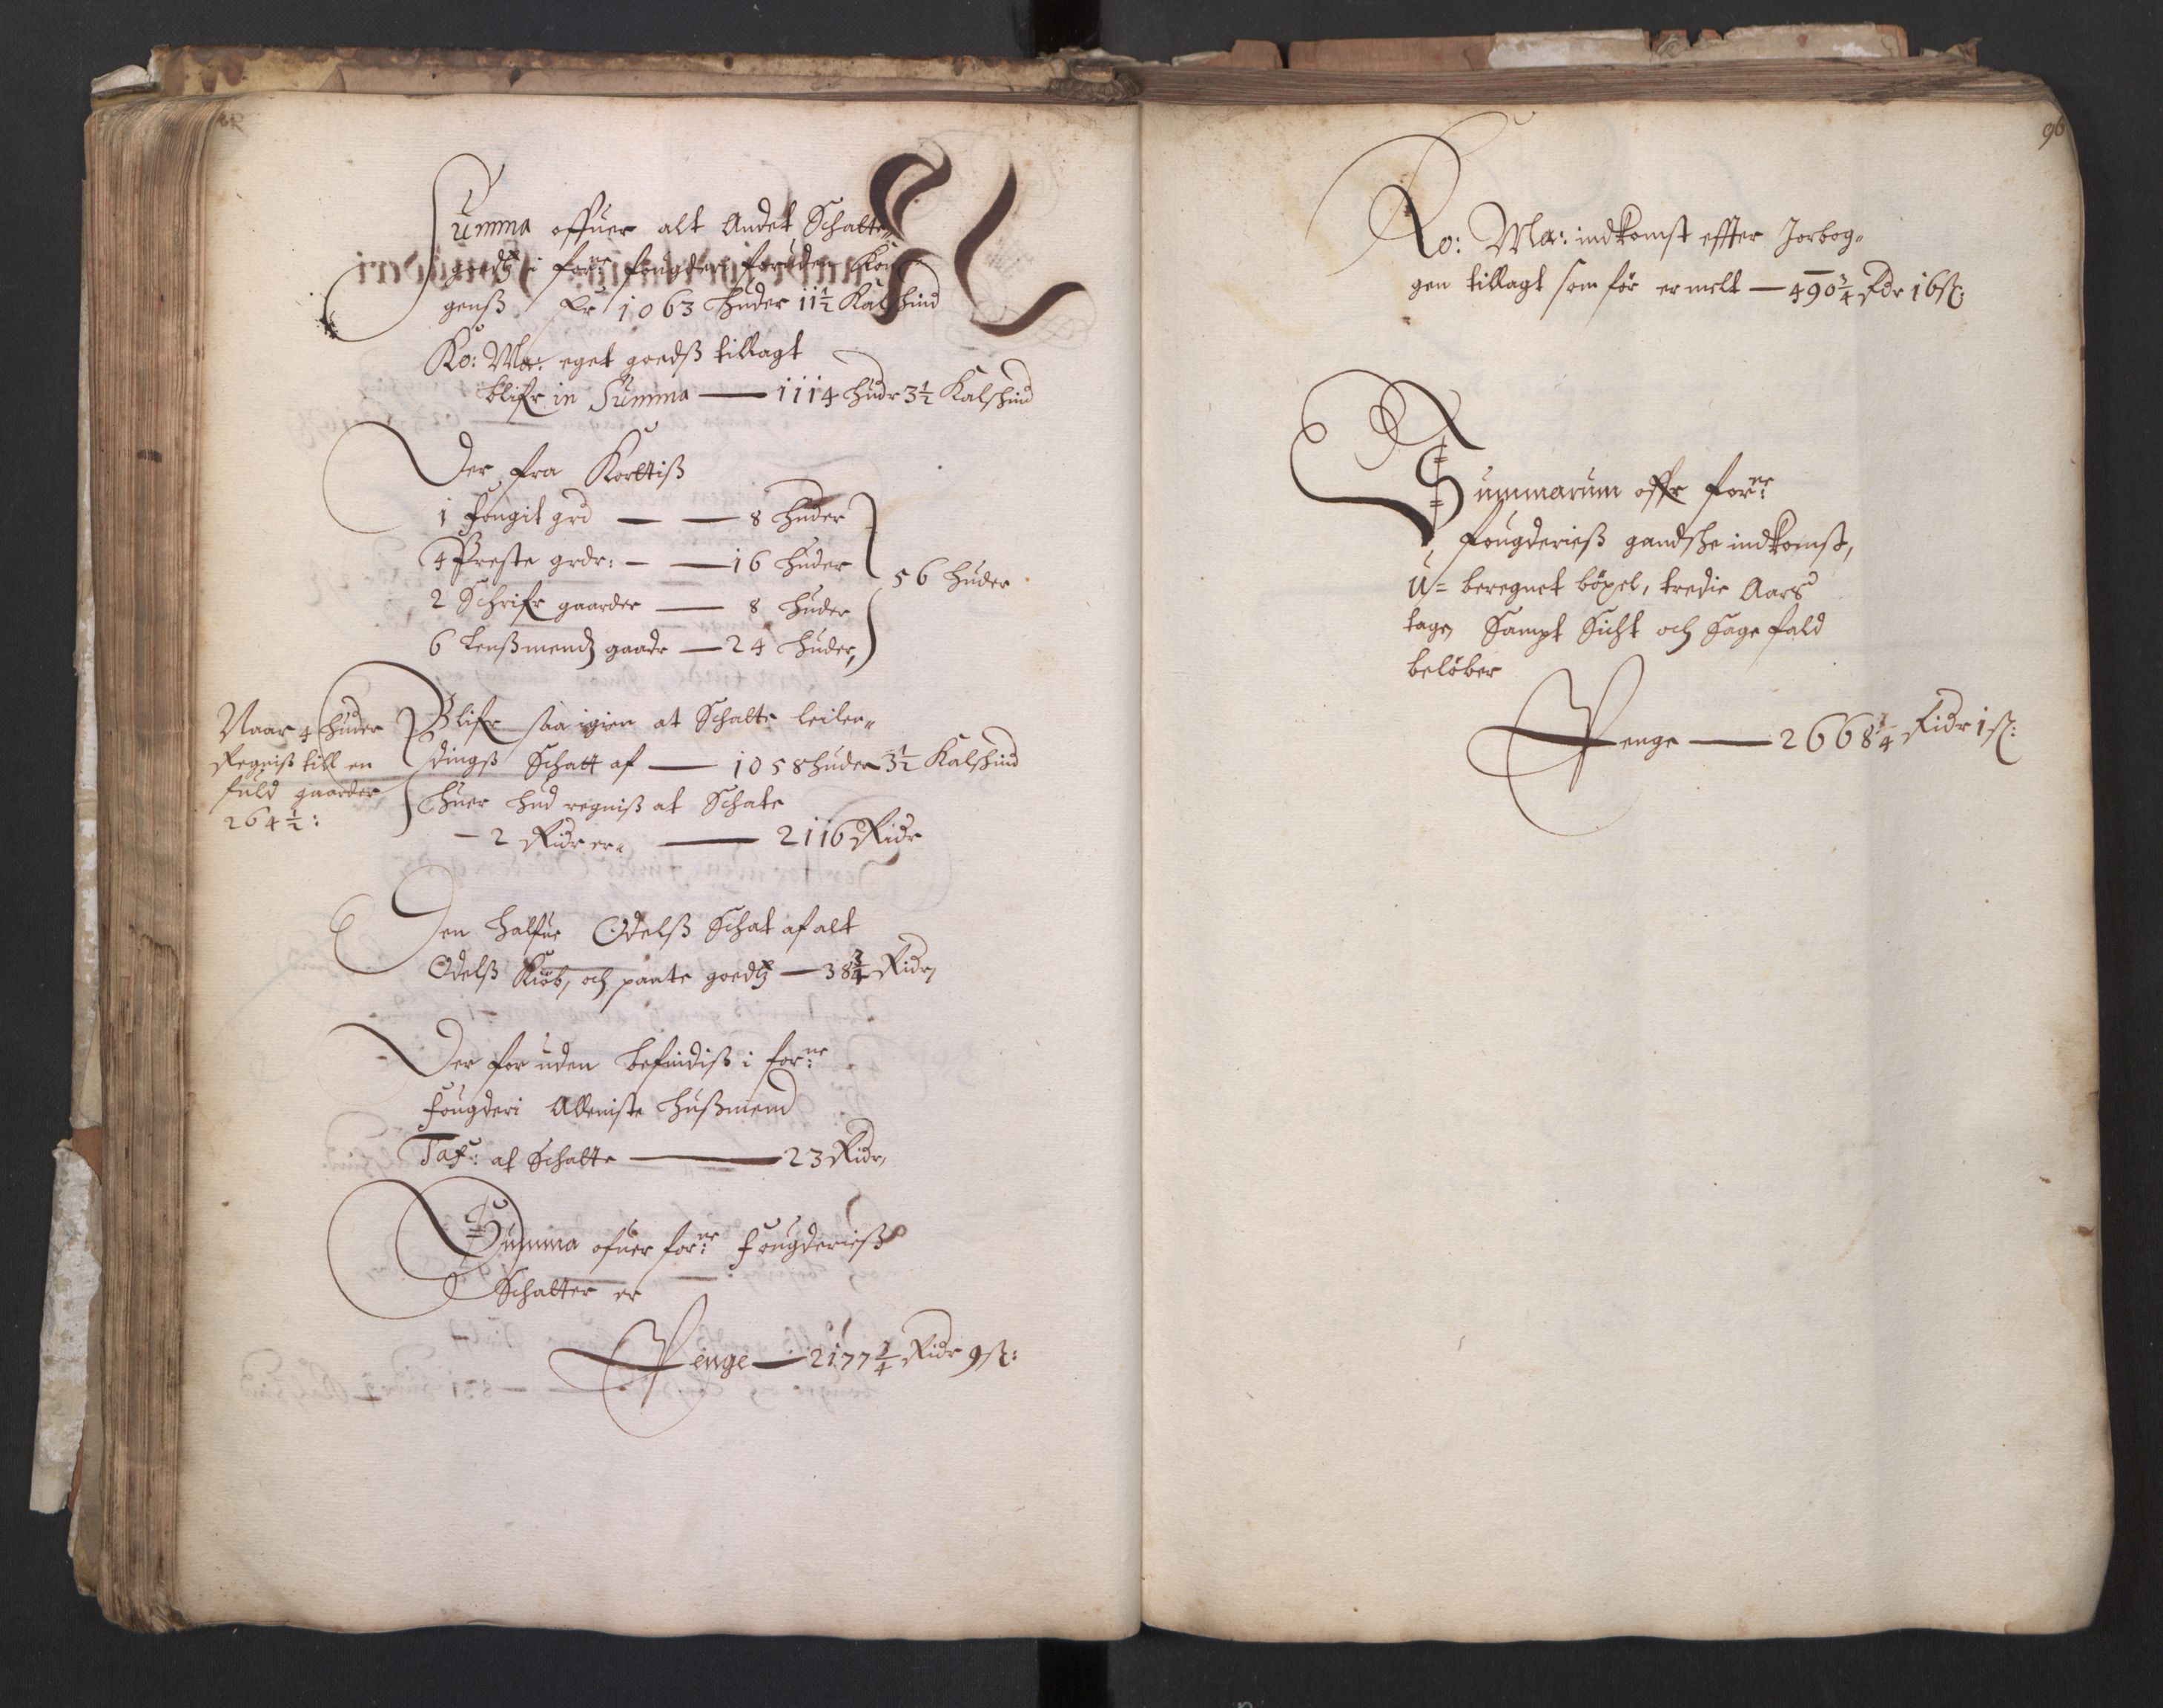 Summa offuer alt Andet Schatte
goedtz i for:ne fougderi foruden Kon
genß Er 1063 huder 11½ Kalschind
Ko: Ma: eget goedß tillagt
blifr in Summa — 1114 hudr 3½ Kalschind
Der fra Kortiß
1 fougit grd — — 8 huder
4 Preste grdr: — — 16 huder
56 huder
2 Schrifr gaarder — 8 huder
6 lenßmendz gaadr — 24 huder,
Naar 4 huder
Regniß till en
fuld gaarder
264½:
Blifr saa igien at Schatte leilen=
dingß Schatt af — 1058 huder 3½ Kalschind
huer hud regniß at Schate
— 2 Ridr er. — 2116 Ridr
Den halfue Odelß Schat af alt
Odelß Kiöb, och pante goedtz — 38¾ Ridr,
Der for uden befindiß i for:ne
fougderi Alleniste hußmend
Tax: at Schatte — 23 Ridr,
Summa ofuer for:ne fougderieß
Schatter er
Penge — 2177¼ Ridr 9 ß:
96
Ko: Ma: indkomst effter Jorbog=
gen tillagt som för er melt — 490¾ Rdr 16 ß:
Summarum offr for:ne
fougderieß gandsche indkomst,
U= beregnet böxel, tredie Aars
tage, Sampt Sicht och Sage fald
belöber
Penge — 2668¼ Ridr 1 ß: